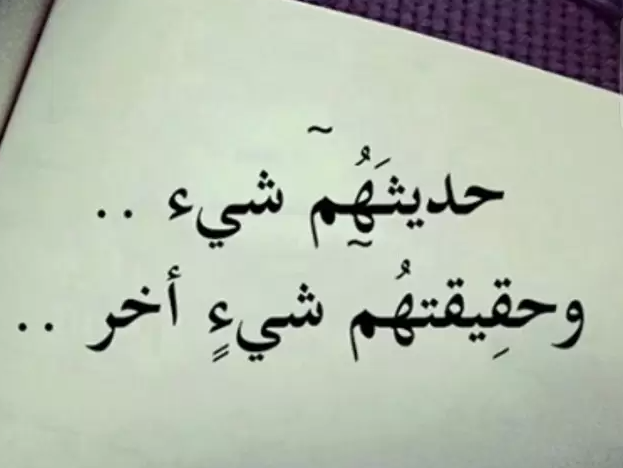 حديثَهُِمٓ شيء ..
وحقِيقتهُم شيءٍ أخر ..